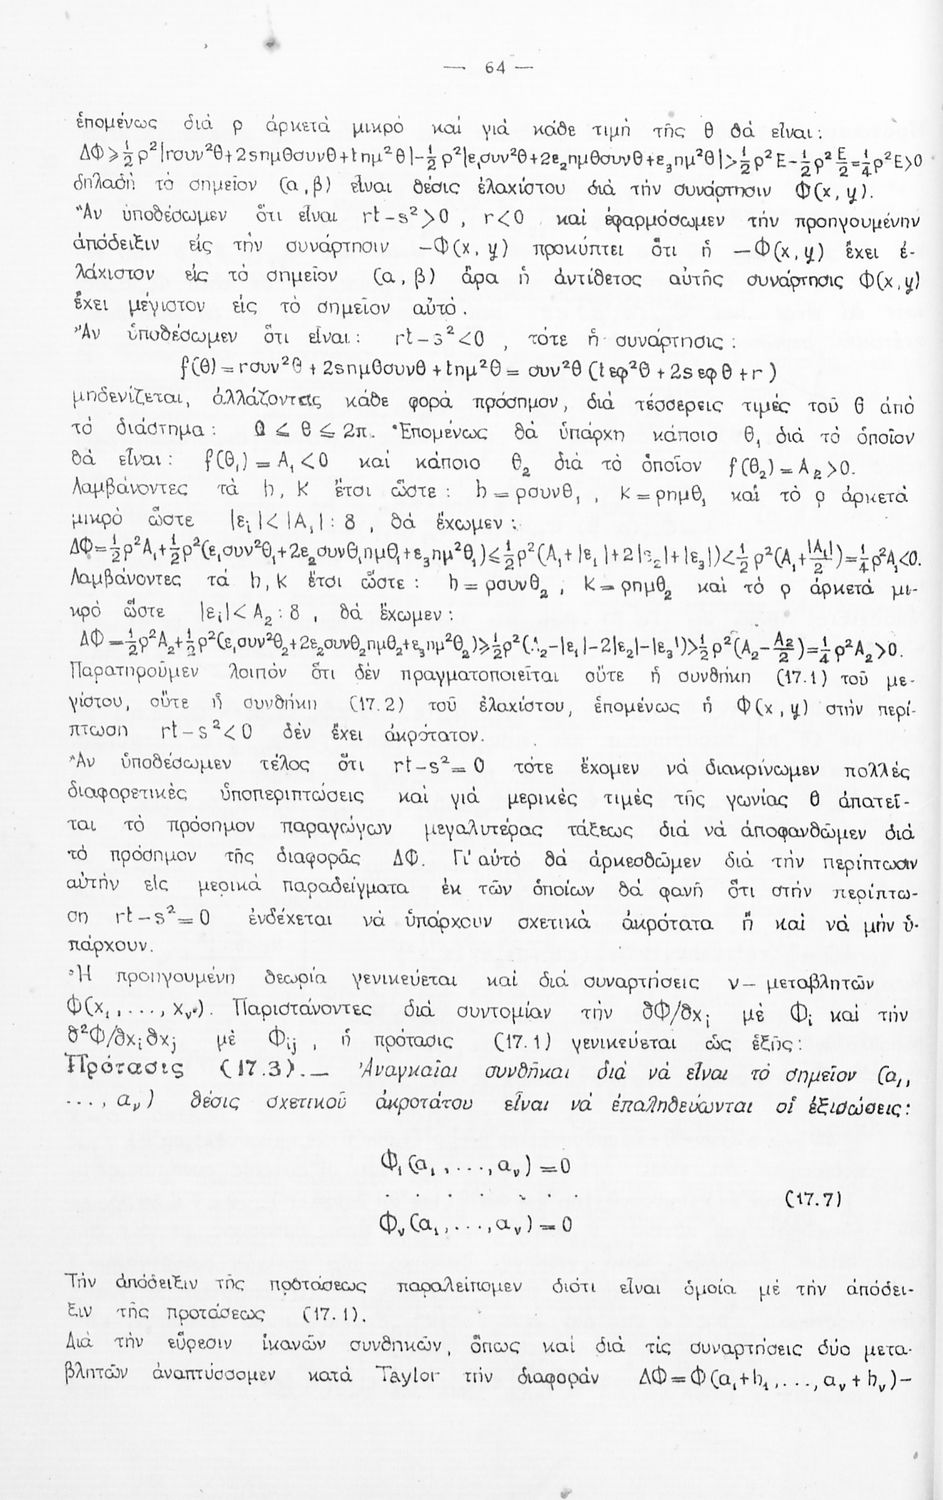 — 64 —
ἑπομένως διά ρ ἀρκετά μικρό καί γιά κάθε τιμή τῆς θ θά εἶναι:
ΔΦ⩾½ρ²|rσυν²θ+2sημθσυνθ+tημ²θ|-½ρ²|ε₁συν²θ+2ε₂ημθσυνθ+ε₃ημ²θ|>½ρ²E-½ρ²E/2=¼ρ²E>0
δηλαδή τό σημεῖον (α,β) εἶναι θέσις ἐλαχίστου διά τήν συνάρτησιν Φ(x,y).
Ἄν ὑποθέσωμεν ὅτι εἶναι rt-s²>0, r<0 καί ἐφαρμόσωμεν τήν προηγουμένην
ἀπόδειξιν εἰς τήν συνάρτησιν -Φ(x,y) προκύπτει ὅτι ἡ -Φ(x,y) ἔχει ἐ-
λάχιστον εἰς τό σημεῖον (α,β) ἄρα ἡ ἀντίθετος αὐτῆς συνάρτησις Φ(x,y)
ἔχει μέγιστον εἰς τό σημεῖον αὐτό.
Ἄν ὑποθέσωμεν ὅτι εἶναι: rt-s²<0, τότε ἡ συνάρτησις:
f(θ)=rσυν²θ+2sημθσυνθ+tημ²θ= συν²θ(tεφ²θ+2sεφθ+r)
μηδενίζεται, ἀλλάζοντας κάθε φορά πρόσημον, διά τέσσερεις τιμές τοῦ θ ἀπό
τό διάστημα: 0 ⩽ θ ⩽ 2π. Ἑπομένως θά ὑπάρχη κάποιο θ₁ διά τό ὁποῖον
θά εἶναι: f(θ₁)=A₁<0 καί κάποιο θ₂ διά τό ὁποῖον f(θ₂)=A₂>0.
Λαμβάνοντες τά h, K ἔτσι ὥστε: h=ρσυνθ₁, κ=ρημθ₁ καί τό ρ ἀρκετά
μικρό ὥστε |εᵢ|<|A₁|:8, θά ἔχωμεν:
ΔΦ=½ρ²A₁+½ρ²(ε₁συν²θ₁+2ε₂συνθ₁ημθ₁+ε₃ημ²θ₁)⩽½ρ²(A₁+|ε₁|+2|ε₂|+|ε₃|)<½ρ²(A₁+|A₁|/2)=¼ρ²A₁<0.
Λαμβάνοντες τά h,κ ἔτσι ὥστε: h=ρσυνθ₂, κ=ρημθ₂ καί τό ρ ἀρκετά μι-
κρό ὥστε |εᵢ|<A₂:8, θά ἔχωμεν:
ΔΦ=½ρ²A₂+½ρ²(ε₁συν²θ₂+2ε₂συνθ₂ημθ₂+ε₃ημ²θ₂)⩾½ρ²(A₂-|ε₁|-2|ε₂|-|ε₃|)>½ρ²(A₂-A₂/2)=¼ρ²A₂>0.
Παρατηροῦμεν λοιπόν ὅτι δέν πραγματοποιεῖται οὔτε ἡ συνθήκη (17.1) τοῦ με-
γίστου, οὔτε ἡ συνθήκη (17.2) τοῦ ἐλαχίστου, ἑπομένως ἡ Φ(x,y) στήν περί-
πτωση rt-s²<0 δέν ἔχει ἀκρότατον.
Ἄν ὑποθέσωμεν τέλος ὅτι rt-s²=0 τότε ἔχομεν νά διακρίνωμεν πολλές
διαφορετικές ὑποπεριπτώσεις καί γιά μερικές τιμές τῆς γωνίας θ ἀπατεῖ-
ται τό πρόσημον παραγώγων μεγαλυτέρας τάξεως διά νά ἀποφανθῶμεν διά
τό πρόσημον τῆς διαφορᾶς ΔΦ. Γι᾽ αὐτό θά ἀρκεσθῶμεν διά τήν περίπτωσιν
αὐτήν εἰς μερικά παραδείγματα ἐκ τῶν ὁποίων θά φανῆ ὅτι στήν περίπτω-
ση rt-s²=0 ἐνδέχεται νά ὑπάρχουν σχετικά ἀκρότατα ἤ καί νά μήν ὑ-
πάρχουν.
Ἡ προηγουμένη θεωρία γενικεύεται καί διά συναρτήσεις ν- μεταβλητῶν
Φ(x₁,...,xᵥ). Παριστάνοντες διά συντομίαν τήν ∂Φ/∂xᵢ μέ Φᵢ καί τήν
∂²Φ/∂xᵢ∂xⱼ μέ Φᵢⱼ, ἡ πρότασις (17.1) γενικεύεται ὡς ἑξῆς:
Πρότασις (17.3).— Ἀναγκαῖαι συνθῆκαι διά νά εἶναι τό σημεῖον (α₁,
...,αᵥ) θέσις σχετικοῦ ἀκροτάτου εἶναι νά ἐπαληθεύωνται οἱ ἐξισώσεις:
Φ₁(α₁,...,αᵥ)=0
. . . . . . . (17.7)
Φᵥ(α₁,...,αᵥ)=0
Τήν ἀπόδειξιν τῆς προτάσεως παραλείπομεν διότι εἶναι ὁμοία μέ τήν ἀπόδει-
ξιν τῆς προτάσεως (17.1).
Διά τήν εὕρεσιν ἱκανῶν συνθηκῶν, ὅπως καί διά τίς συναρτήσεις δύο μετα-
βλητῶν ἀναπτύσσομεν κατά Taylor τήν διαφοράν ΔΦ=Φ(α₁+h₁,...,αᵥ+hᵥ)-